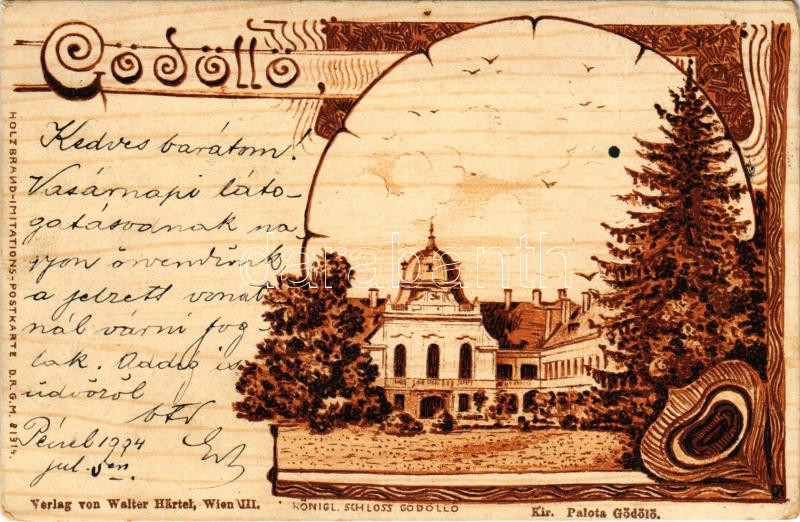 Gödöllő,
HOLZBRAND-IMITATIONS-POSTKARTE D.R.G.M. 81314.
Kedves barátom!
Vasárnapi láto-
gatásodnak na-
gyon örvendünk
a jelzett vonat-
nál várni fog-
lak. Addig is
üdvözöl
Péczel 1904
jul. 5én
darabanth
Verlag von Walter Härtel, Wien VII.
KÖNIGL. SCHLOSS GÖDÖLLŐ
Kir. Palota Gödölö.